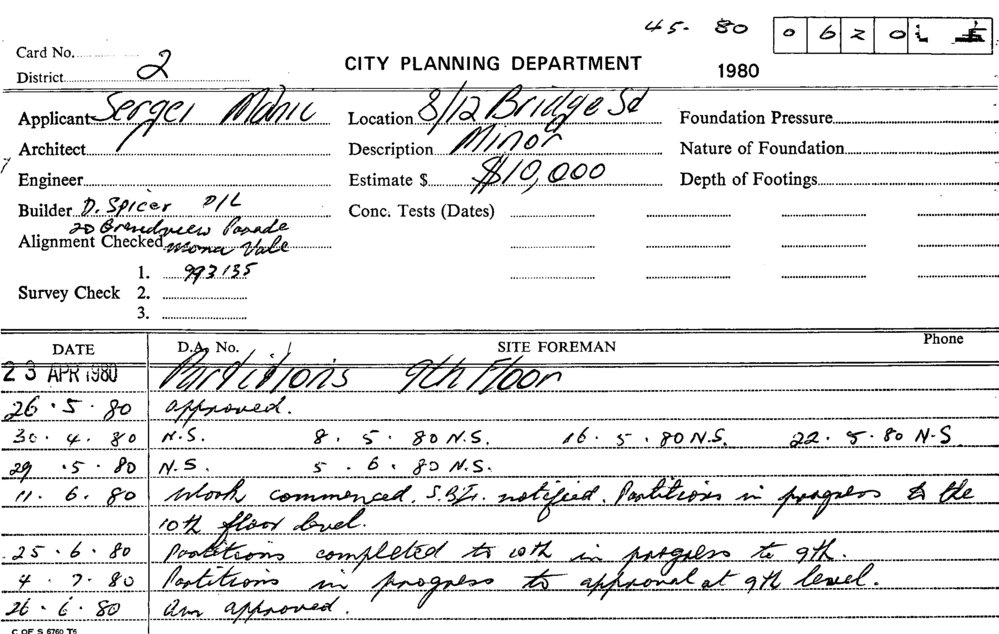 45. 80 0 6 2 0
Card No.
District 2
CITY PLANNING DEPARTMENT 1980
Applicant Sergei Manic Location 8/12 Bridge Sd Foundation Pressure
Architect Description Minor Nature of Foundation
Engineer Estimate $ $10,000 Depth of Footings
Builder D. Spicer P/L Conc. Tests (Dates)
20 Grandview Parade
Alignment Checked Mona Vale
1. 993135
Survey Check 2.
3.
DATE D.A. No. SITE FOREMAN Phone
23 APR 1980 Partitions 9th Floor
26.5.80 approved.
30.4.80 N.S. 8.5.80 N.S. 16.5.80 N.S. 22.5.80 N-S
29.5.80 N.S. 5.6.80 N.S.
11.6.80 Work commenced. notified. Partitions in progress to the
10th floor level.
25.6.80 Partitions completed to 10th in progress to 9th.
4.7.80 Partitions in progress to approval at 9th level.
26.6.80 Am approved.
C OF S 6760 T5